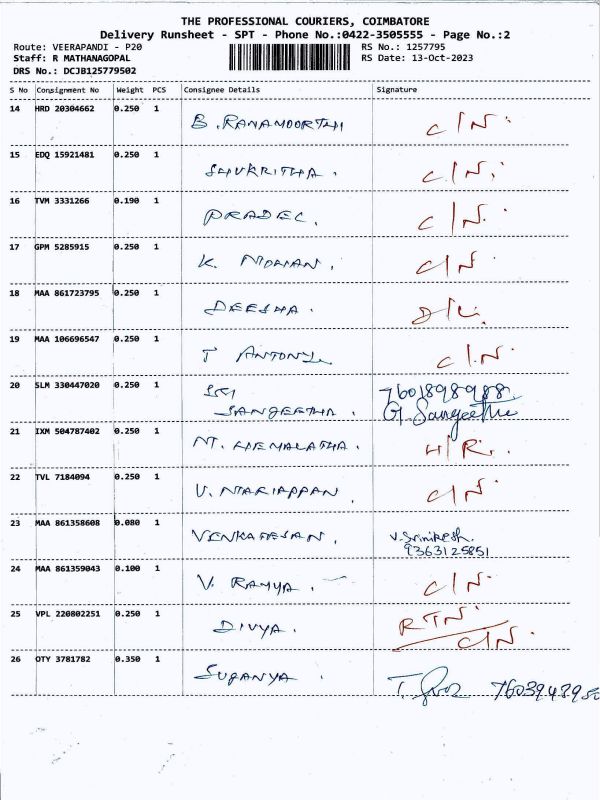 THE PROFESSIONAL COURIERS, COIMBATORE
Delivery Runsheet - SPT - Phone No.:0422-3505555 - Page No.:2
Route: VEERAPANDI - P20 RS No.: 1257795
Staff: R MATHANAGOPAL RS Date: 13-Oct-2023
DRS No.: DCJB125779502
S No Consignment No Weight PCS Consignee Details Signature
14 HRD 20304662 0.250 1 B. RAMAMOORTHI C/N.
15 EDQ 15921481 0.250 1 SHUKRITHA. C/N.
16 TVM 3331266 0.190 1 PRADEC. C/N.
17 GPM 5285915 0.250 1 K. MOHAN. C/N.
18 MAA 861723795 0.250 1 DEESHA. D/L.
19 MAA 106696547 0.250 1 T ANTONY. C/N.
20 SLM 330447020 0.250 1 SRI 7601898988
SANGEETHA. G. Sangeetha
21 IXM 504787402 0.250 1 M. HEMALATHA. H/R.
22 TVL 7184094 0.250 1 V. MARIAPPAN C/N.
23 MAA 861358608 0.080 1 VENKATESAN. V. Srinikesh.
9363125851
24 MAA 861359043 0.100 1 V. RAMYA. C/N.
25 VPL 220802251 0.250 1 DIVYA. RTN.
C/N.
26 OTY 3781782 0.350 1 SUGANYA. T.